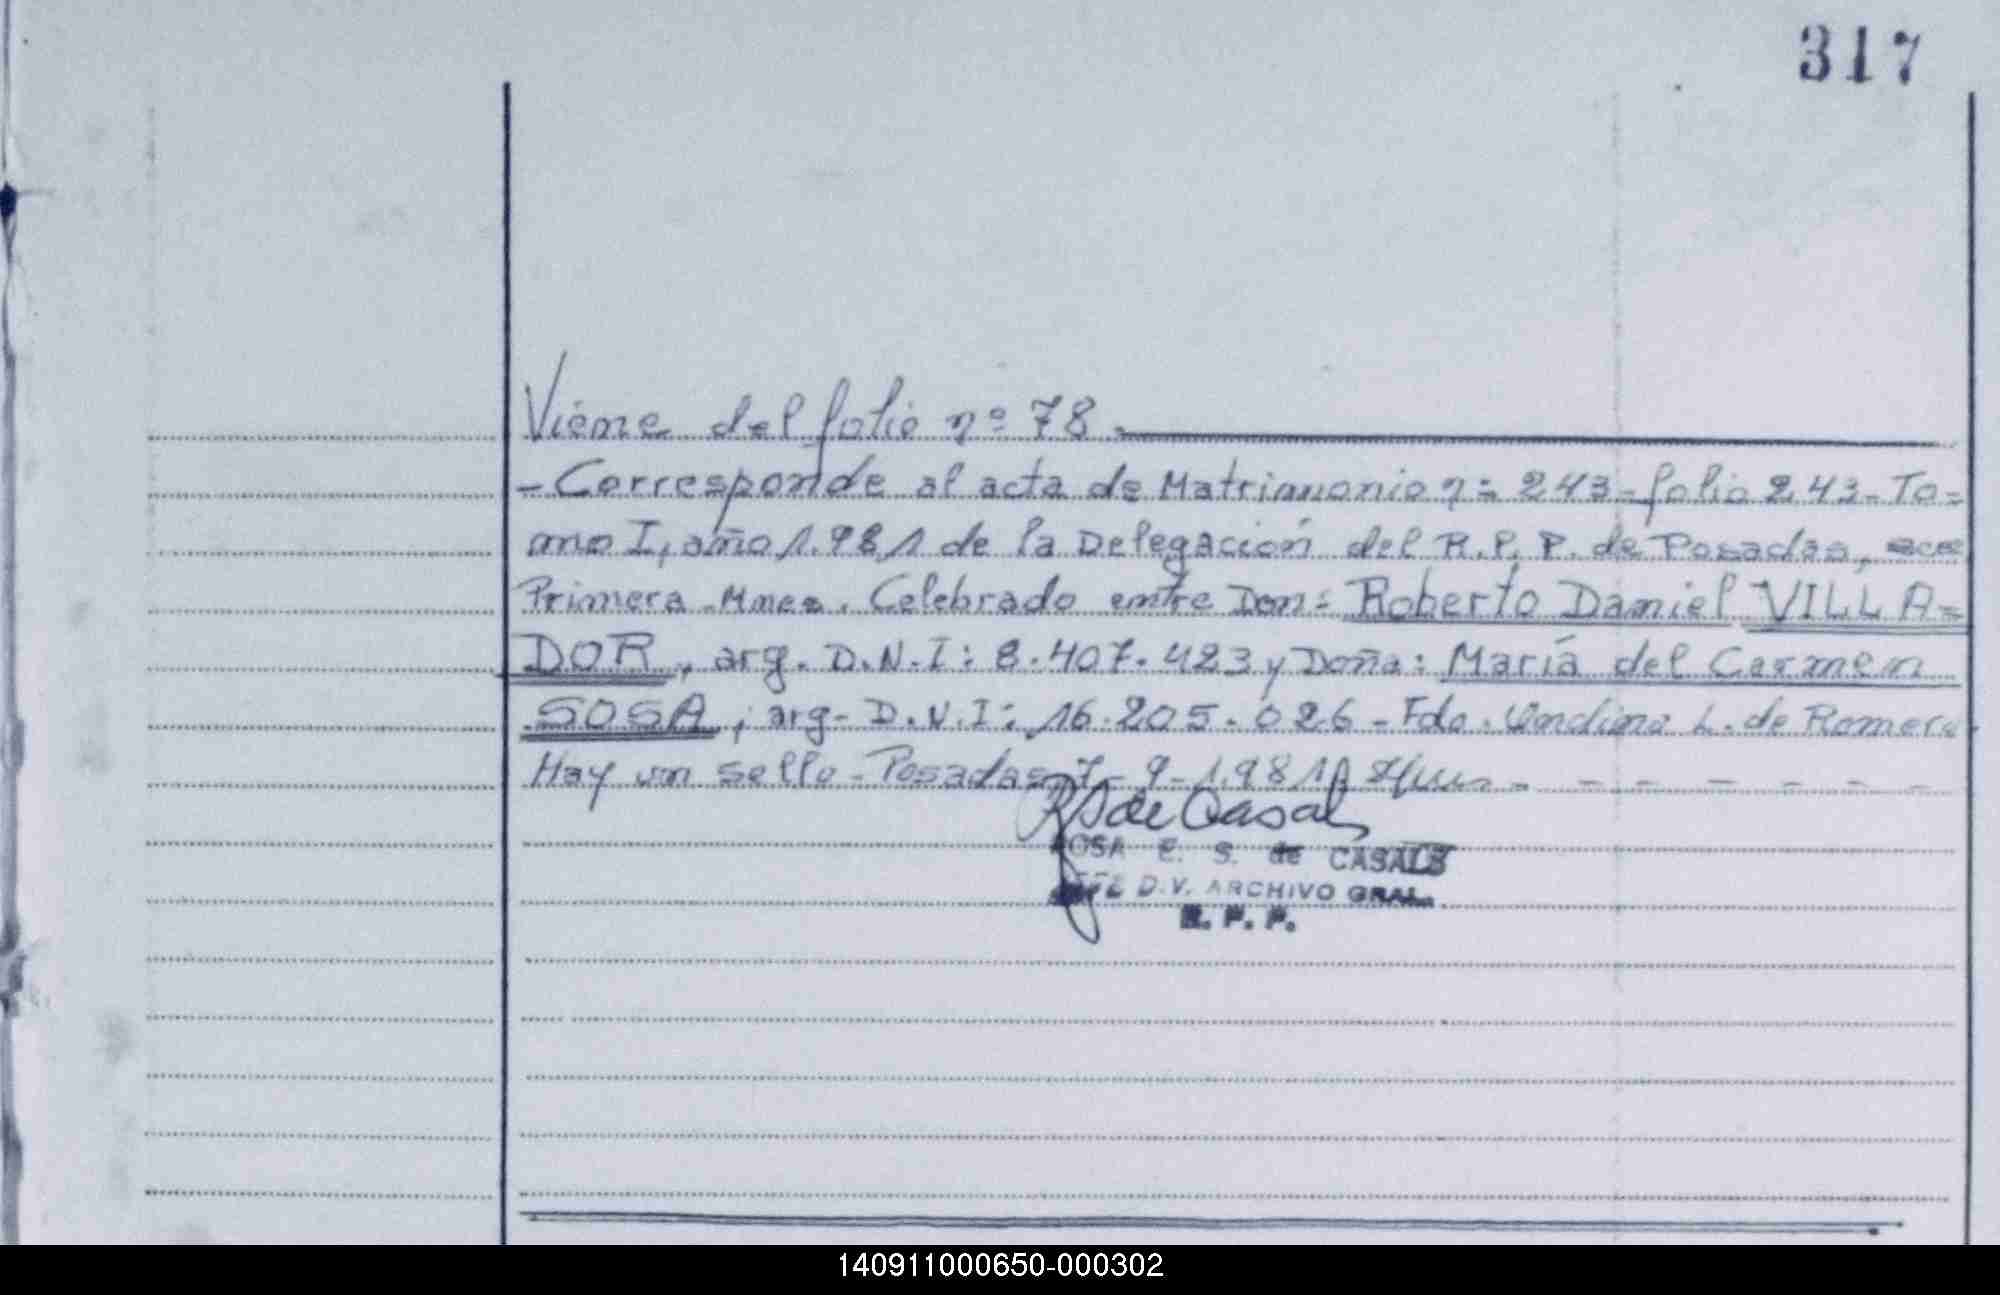 317
Viene del folio nº 78.
- Corresponde al acta de Matrimonio nº 243 - folio 243 - To=
mo I, año 1.981 de la Delegación del R.P.P. de Posadas,
Primera Mnes. Celebrado entre Don: Roberto Daniel VILLA=
DOR, arg. D.N.I: 8.407.423 y Doña: María del Carmen
SOSA, arg- D.N.I: 16.205.026 - Fdo. Ondina L. de Romero
Hay un sello - Posadas, 7 - 9 - 1.981
RS de Casals
OSA E. S. de CASALS
JEFE D.V. ARCHIVO GRAL.
R. P. P.
140911000650-000302